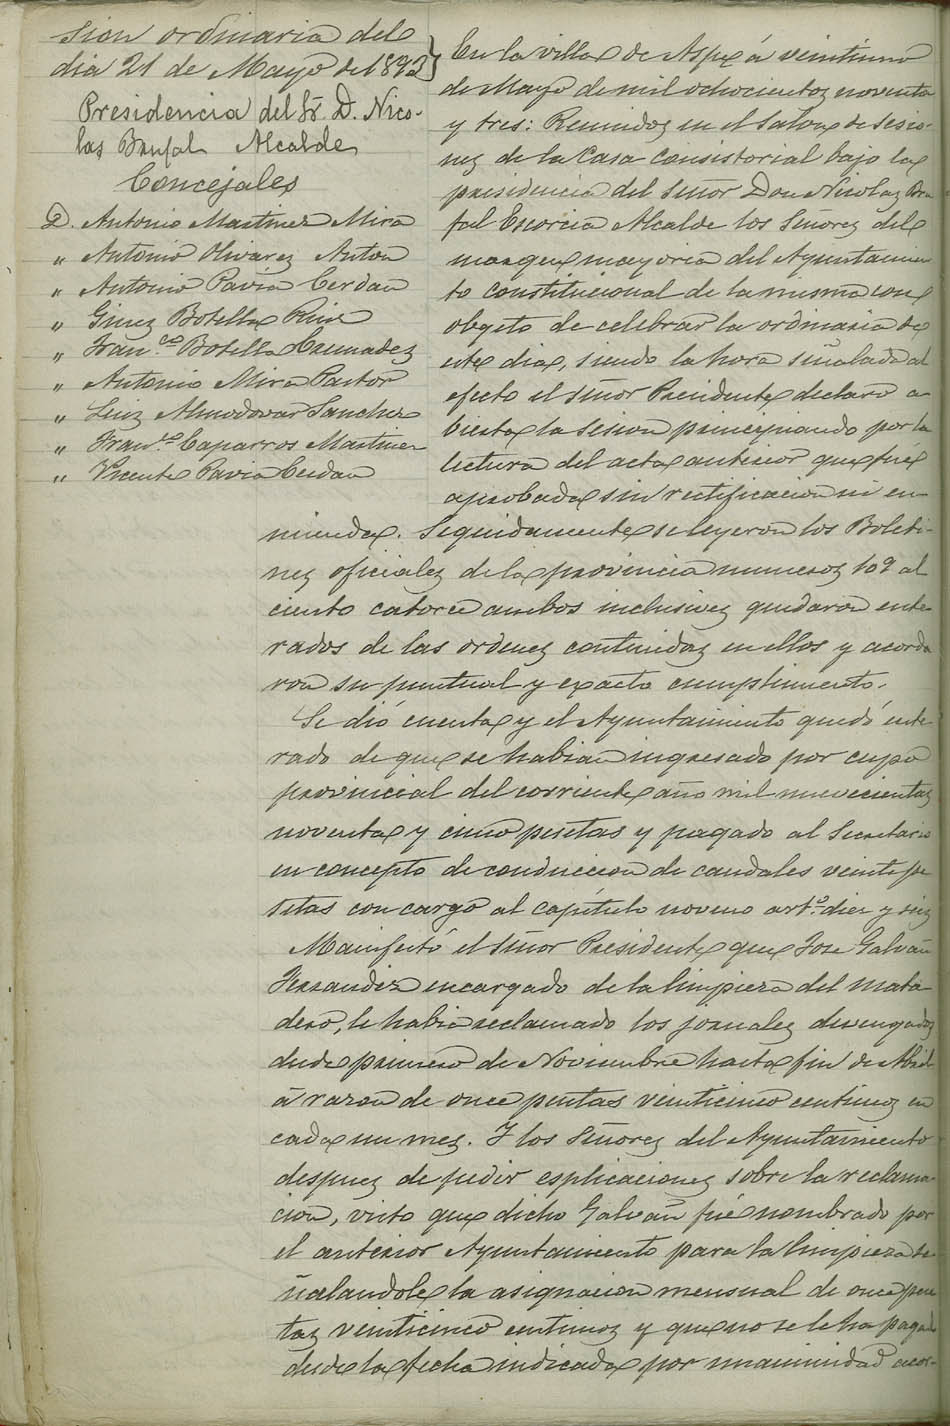 sion ordinaria del
dia 21 de Mayo del 1893
Presidencia del Sr. D. Nico-
las Brufal Alcalde
Concejales
D. Antonio Martinez Mira
" Antonio Olivarez Anton
" Antonio Pavia Cerdan
" Ginez Botella
" Fran.co Botella
" Antonio Mira Pastor
" Luiz Almodovar Sanchez
" Fran.co Caparros Martinez
" Vicente Pavia Cerdan
En la villa de Aspe á veintiuno
de Mayo de mil ochocientoz noventa
y tres: Reunidoz en el Salon de Sesio-
nez de la Casa Consistorial bajo la
presidencia del Señor Don Nicolaz Bru
fal Escorcia Alcalde los Señorez del
margen mayoria del Ayuntamien
to constitucional de la misma con
obgeto de celebrar la ordinaria de
este dia, siendo la hora señalada al
efecto el señor Presidente declaró a-
bierta la sesion principiando por la
lectura del acta anterior que fué
aprobada sin rectificacion ni en-
mienda. Seguidamente se leyeron los Boleti-
nez oficialez de la provincia numeroz 109 al
ciento catorce ambos inclusivez quedaron ente-
rados de las ordenez contenidaz en ellos y acorda
ron su puntual y exacto cumplimiento.
Se dió cuenta y el Ayuntamiento quedó ente-
rado de que se habian ingresado por cupo
provincial del corriente año mil novecientaz
noventa y cinco pesetas y pagado al Secretario
en concepto de conduccion de caudales veinte pe
setas con cargo al capítulo noveno art.o diez y seiz
Manifestó el señor Presidente que Jose Galvañ
Hernandez encargado de la limpieza del mata-
dero, le habia reclamado los jornalez devengadoz
desde primero de Noviembre hasta fin de Abril
á razon de once pesetas veinticinco centimoz en
cada un mez. Y los Señorez del Ayuntamiento
despuez de pedir esplicacionez sobre la reclama-
cion, visto que dicho Galvañ fué nombrado por
el anterior Ayuntamiento para la limpieza se-
ñalandole la asignacion mensual de once pese
taz veinticinco centimoz y que no se le ha pagado
desde la fecha indicada por unanimidad acor-